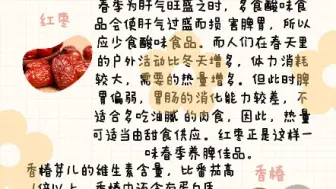 春季为肝气旺盛之时，多食酸味食
品会使肝气过盛而损 害脾胃，所以
应少食酸味食品。而人们在春天里
的户外活动比冬天增多，体力消耗
较大，需要的热量增多。但此时脾
胃偏弱，胃肠的消化能力较差，不
适合多吃油腻 的肉食，因此，热量
可适当由甜食供应。红枣正是这样一
味春季养脾佳品。
红枣
香椿芽儿的维生素含量，比番茄高
香椿